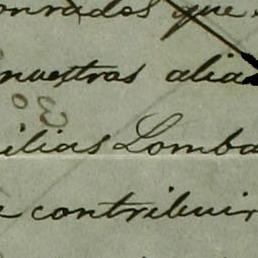 onrados que
nuestras alia
3º
ilias Lomba
e contribuir